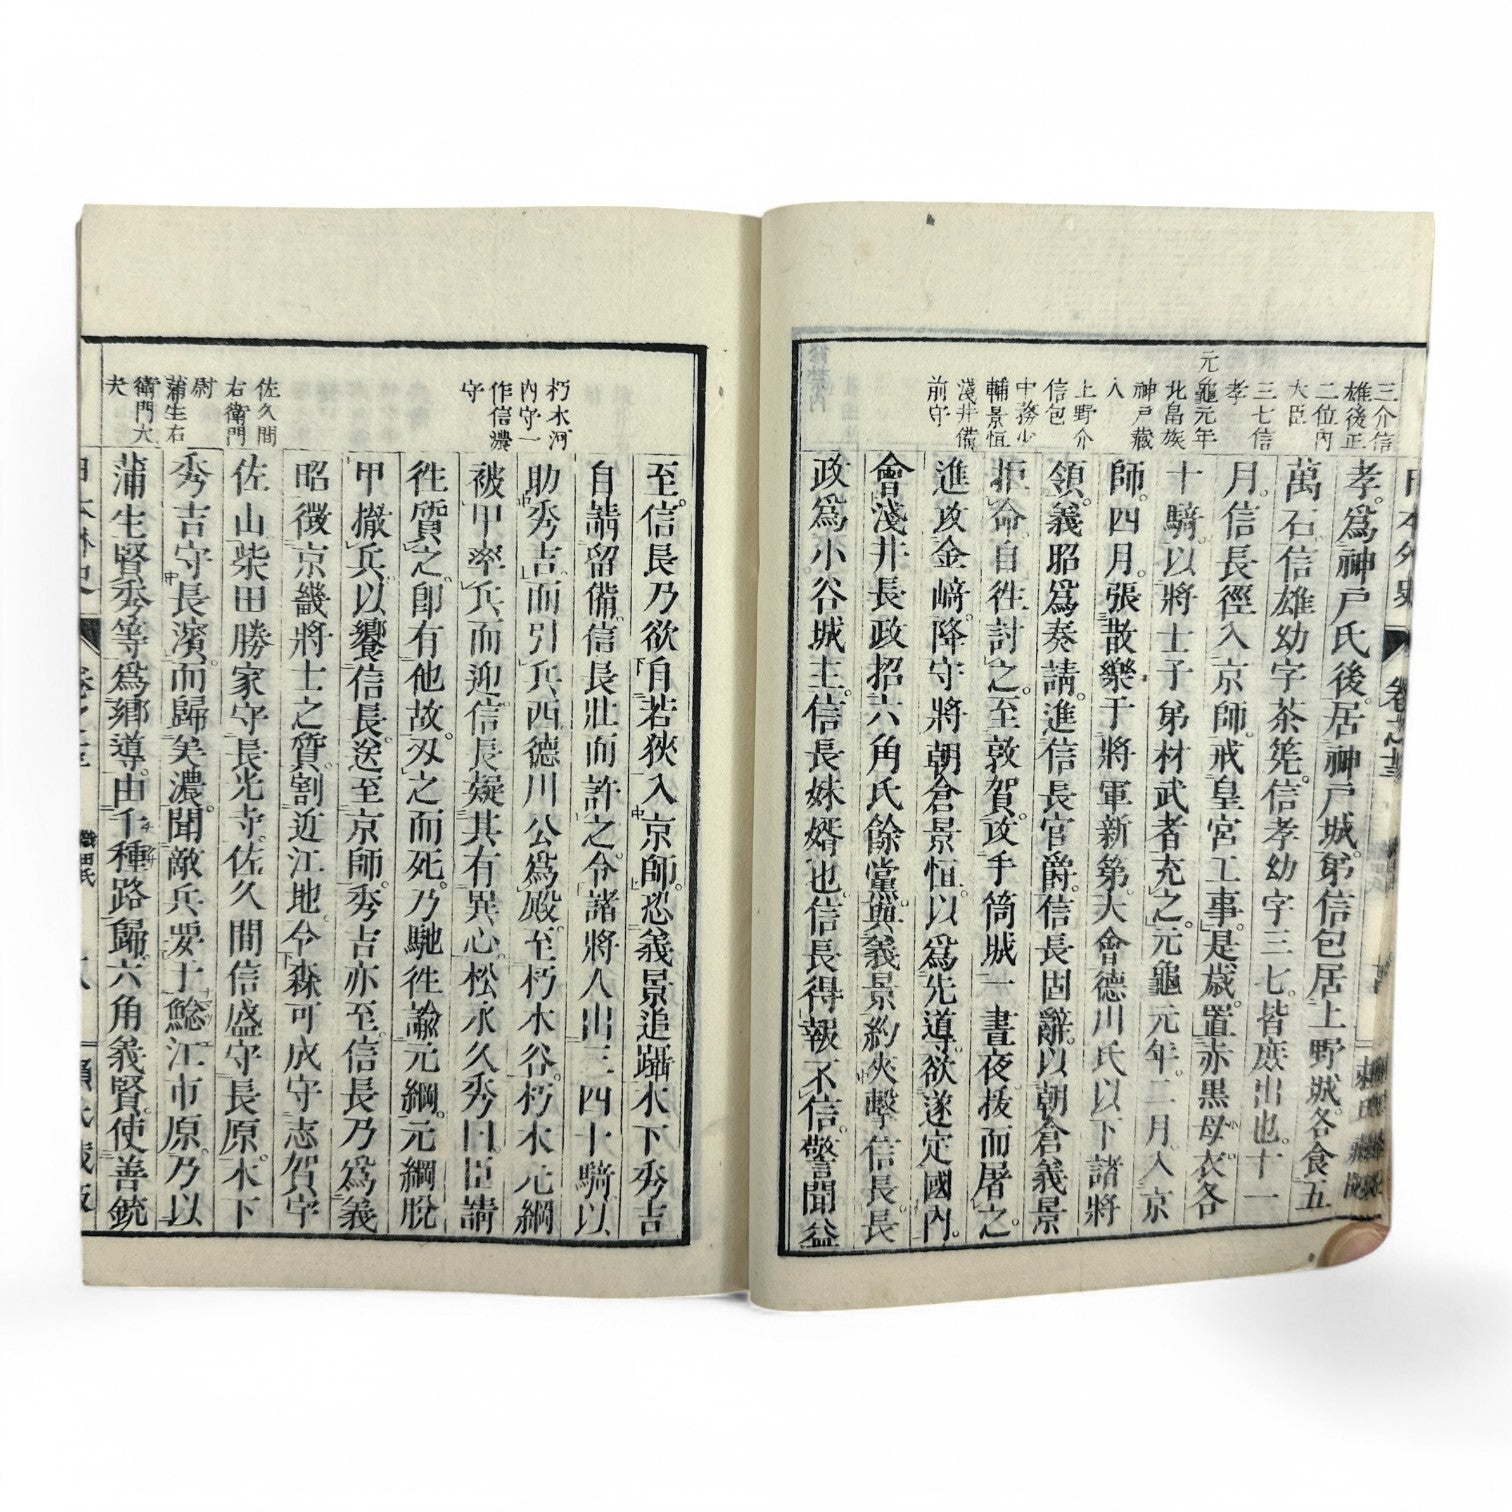 日本外史
三介信
雄後正
二位內
大臣
三七信
孝
元龜元年
北畠族
神戸藏
人
上野介
信包
中務少
輔景恒
淺井備
前守
孝。爲神戸氏後。居神戸城。弟信包居上野城。各食五
萬石。信雄幼字茶筅。信孝幼字三七。皆庶出也。十一
月。信長徑入京師。戒皇宮工事。是歳。置赤黒母衣各
十騎。以將士子弟材武者充之。元龜元年。二月。入京
師。四月。張散樂于將軍新第。大會德川氏以下諸將
領。義昭爲奏請。進信長官爵。信長固辭。以朝倉義景
拒命。自徃討之。至敦賀。攻手筒城。一晝夜拔而屠之。
進攻金﨑。降守將朝倉景恒。以爲先導。欲遂定國內。
會淺井長政招六角氏餘黨。與義景約夾擊信長。長
政爲小谷城主。信長妹婿也。信長得報不信。警聞益
朽木河
內守一
作信濃
守
佐久間
右衛門
尉
蒲生右
衛門大
夫
至。信長乃欲自若狹入京師。恐義景追躡。木下秀吉
自請留備。信長壯而許之。令諸將人出三四十騎以
助秀吉。而引兵西。德川公爲殿。至朽木谷。朽木元綱
被甲率兵而迎。信長疑其有異心。松永久秀曰。臣請
徃質之。卽有他故。刄之而死。乃馳徃諭元綱。元綱脫
甲撤兵。以饗信長。送至京師。秀吉亦至。信長乃爲義
昭徵京畿將士之質。割近江地。令森可成守志賀。守
佐山柴田勝家守長光寺。佐久間信盛守長原。木下
秀吉守長濱。而歸美濃。聞敵兵要于鯰江市原。乃以
蒲生賢秀等爲鄕導。由千種路歸。六角義賢。使善銃
日本外史
織田氏
賴氏藏版